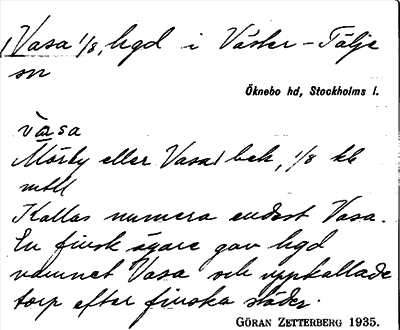 Vasa 1/8, hgd i Väster-Tälje
sn
Öknebo hd, Stockholms l.
vàsa
Mörby eller Vasa bek, 1/8 kb
mtl
Kallas numera endast Vasa.
En finsk ägare gav hgd
namnet Vasa och uppkallade
torp efter finska städer.
GÖRAN ZETTERBERG 1935.